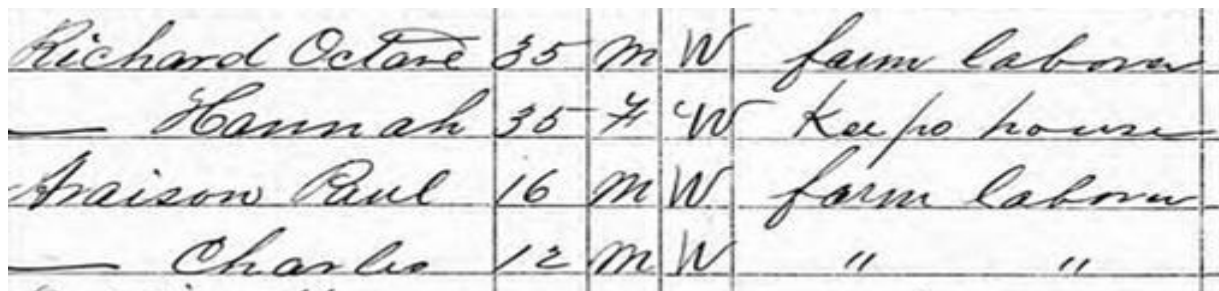 Richard Octave 35 M W farm laborer
— Hannah 35 F W Keeps house
Paul 16 M W farm laborer
— Charles 12 M W " "